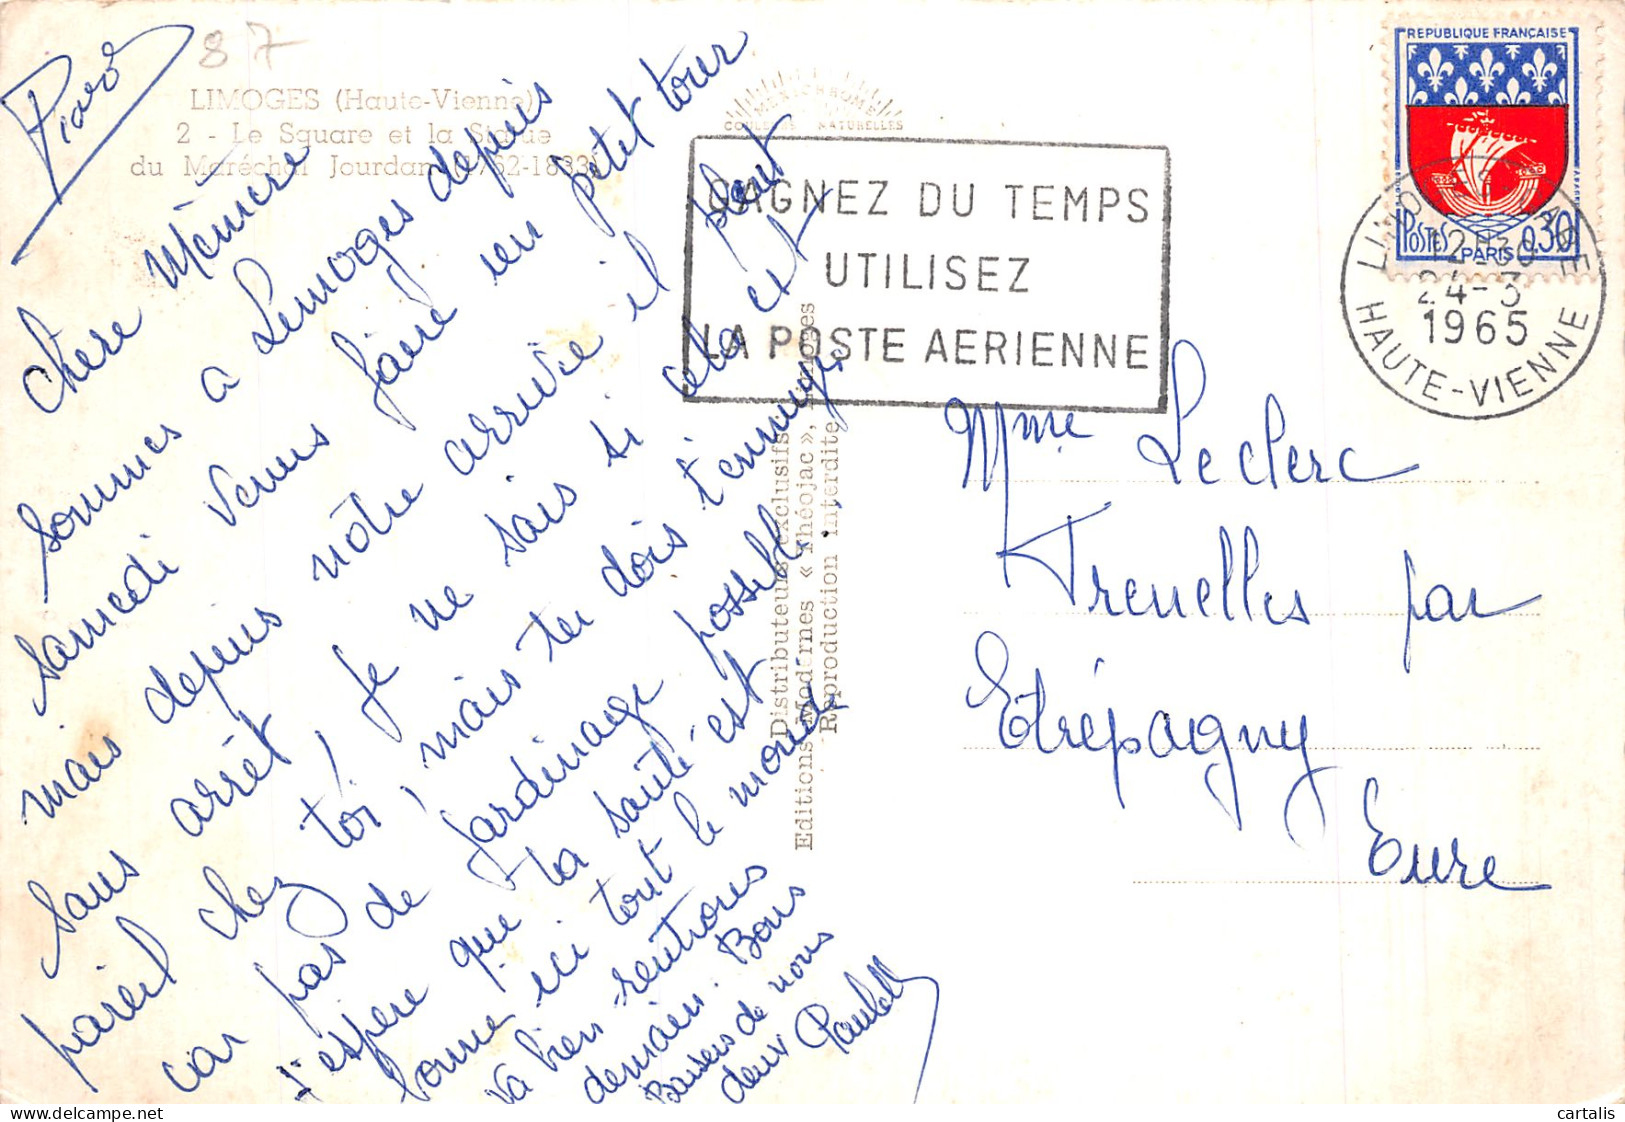 87
LIMOGES (Haute-Vienne)
2 - Le Square et la Statue
du Maréchal Jourdan (1762-1833)
MEXICHROME
COULEURS NATURELLES
Chère Mémère
sommes à Limoges depuis
samedi venus faire un petit tour
mais depuis notre arrivée il pleut
sans arrêt ! Je ne sais si cela est
pareil chez toi, mais tu dois t'ennuyer
car pas de jardinage possible
J'espère que ta santé est
bonne, ici tout le monde
va bien. rentrons
demain. Bons
Baisers de nous
deux
Distributeurs exclusifs
Editions Modernes « Théojac », Limoges
Reproduction interdite
GAGNEZ DU TEMPS
UTILISEZ
LA POSTE AERIENNE
REPUBLIQUE FRANÇAISE
POSTES 0,30
PARIS
LIMOGES GARE
12H30
24-3
1965
HAUTE-VIENNE
Mme Leclerc
Frenelles par
Etrépagny
Eure
cartalis
delcampe.net